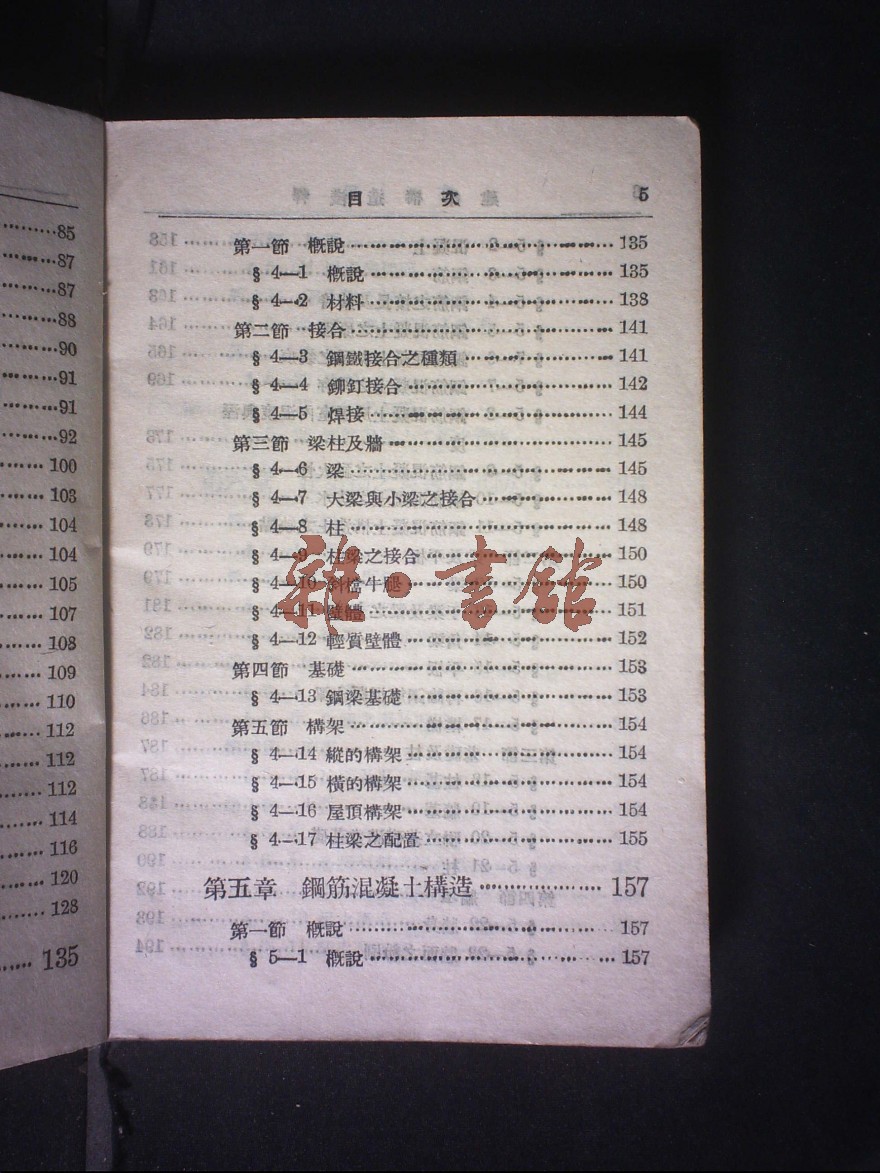 85
87
87
88
90
91
91
92
100
103
104
104
105
107
108
109
110
112
112
112
114
116
120
128
135
目次 5
第一節 概說 135
§ 4—1 概說 135
§ 4—2 材料 138
第二節 接合 141
§ 4—3 鋼鐵接合之種類 141
§ 4—4 鉚釘接合 142
§ 4—5 焊接 144
第三節 梁柱及牆 145
§ 4—6 梁 145
§ 4—7 大梁與小梁之接合 148
§ 4—8 柱 148
§ 4—9 柱梁之接合 150
§ 4—10 斜撐牛腿 150
§ 4—11 壁體 151
§ 4—12 輕質壁體 152
第四節 基礎 153
§ 4—13 鋼梁基礎 153
第五節 構架 154
§ 4—14 縱的構架 154
§ 4—15 橫的構架 154
§ 4—16 屋頂構架 154
§ 4—17 柱梁之配置 155
第五章 鋼筋混凝土構造 157
第一節 概說 157
§ 5—1 概說 157
雜·書館